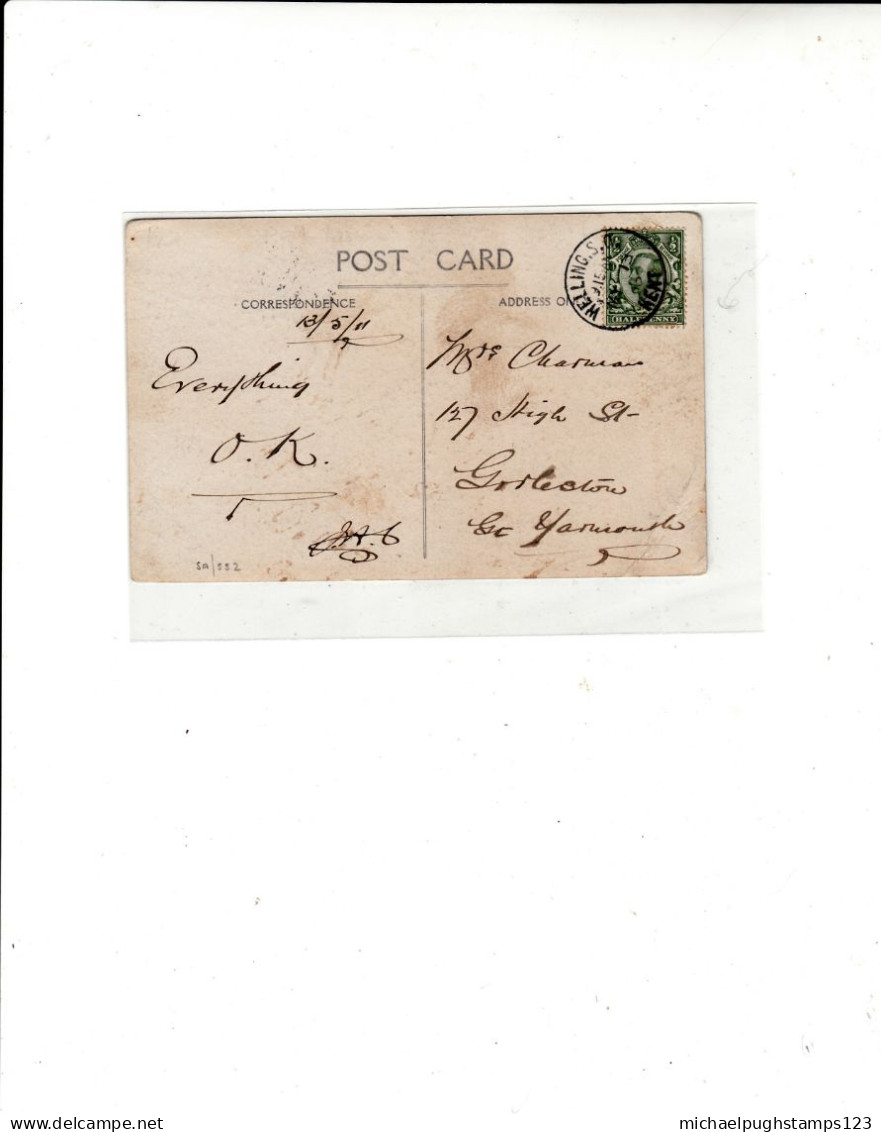 POST CARD
CORRESPONDENCE
ADDRESS ON
WELLING.S.O
KENT
HALFPENNY
13/5/11
Everything
O.K.
J.A.C
Mrs Charman
127 High St
Gorleston
Gt Yarmouth
SA/552
michaelpughstamps123